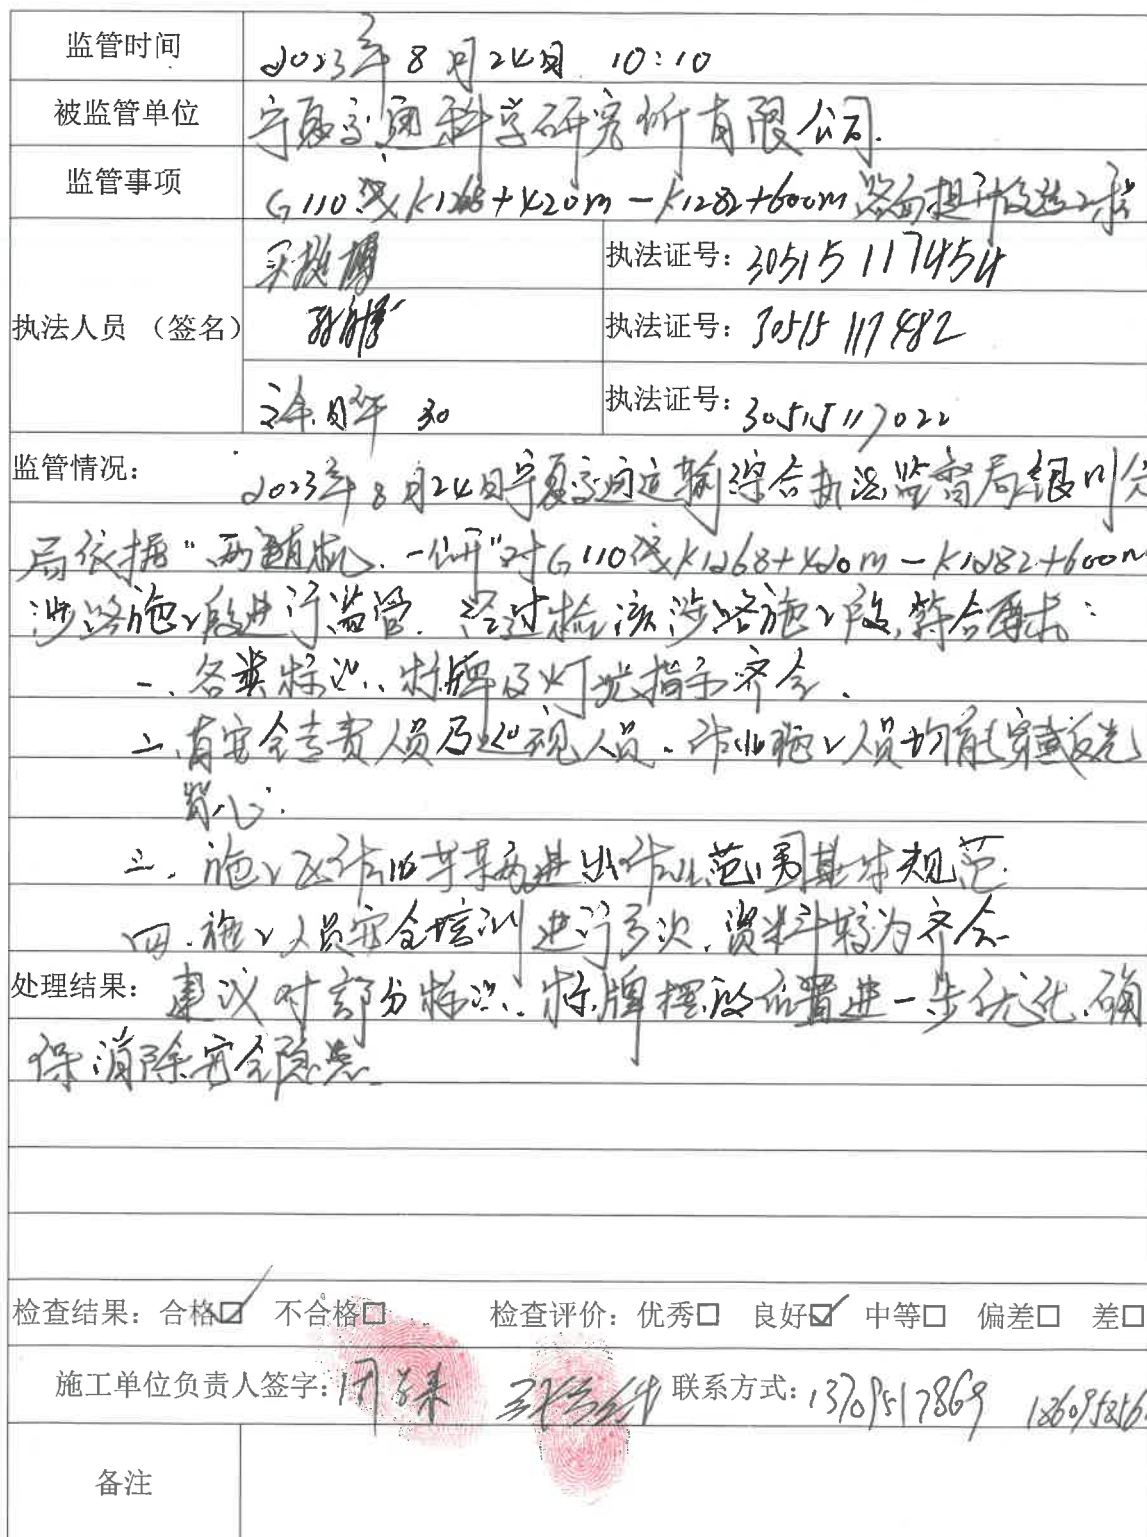 监管时间 2023年8月24日 10:10
被监管单位 宁夏交通科学研究所有限公司.
监管事项 G110线K1268+420m-K1282+600m路面提升改造工程
执法证号: 30515117454
执法人员 (签名) 执法证号: 30515117482
涂日华 30 执法证号: 30515117022
监管情况: 2023年8月24日宁夏交通运输综合执法监督局银川分
局依据“两随机、一公开”对G110线K1268+420m-K1282+600m
涉路施工段进行监管. 经过检该涉路施工段,符合要求:
一、各类标志、标牌及灯光指示齐全.
二、有安全专责人员及巡视人员、作业施工人员均能穿戴反光
背心.
三、施工区作业车辆进出作业范围基本规范.
四、施工人员安全培训进行多次,资料较为齐全.
处理结果: 建议对部分标志、标牌摆放位置进一步优化,确
保消除安全隐患.
检查结果: 合格☑ 不合格□ 检查评价: 优秀□ 良好☑ 中等□ 偏差□ 差□
施工单位负责人签字: 联系方式: 13709517869
备注